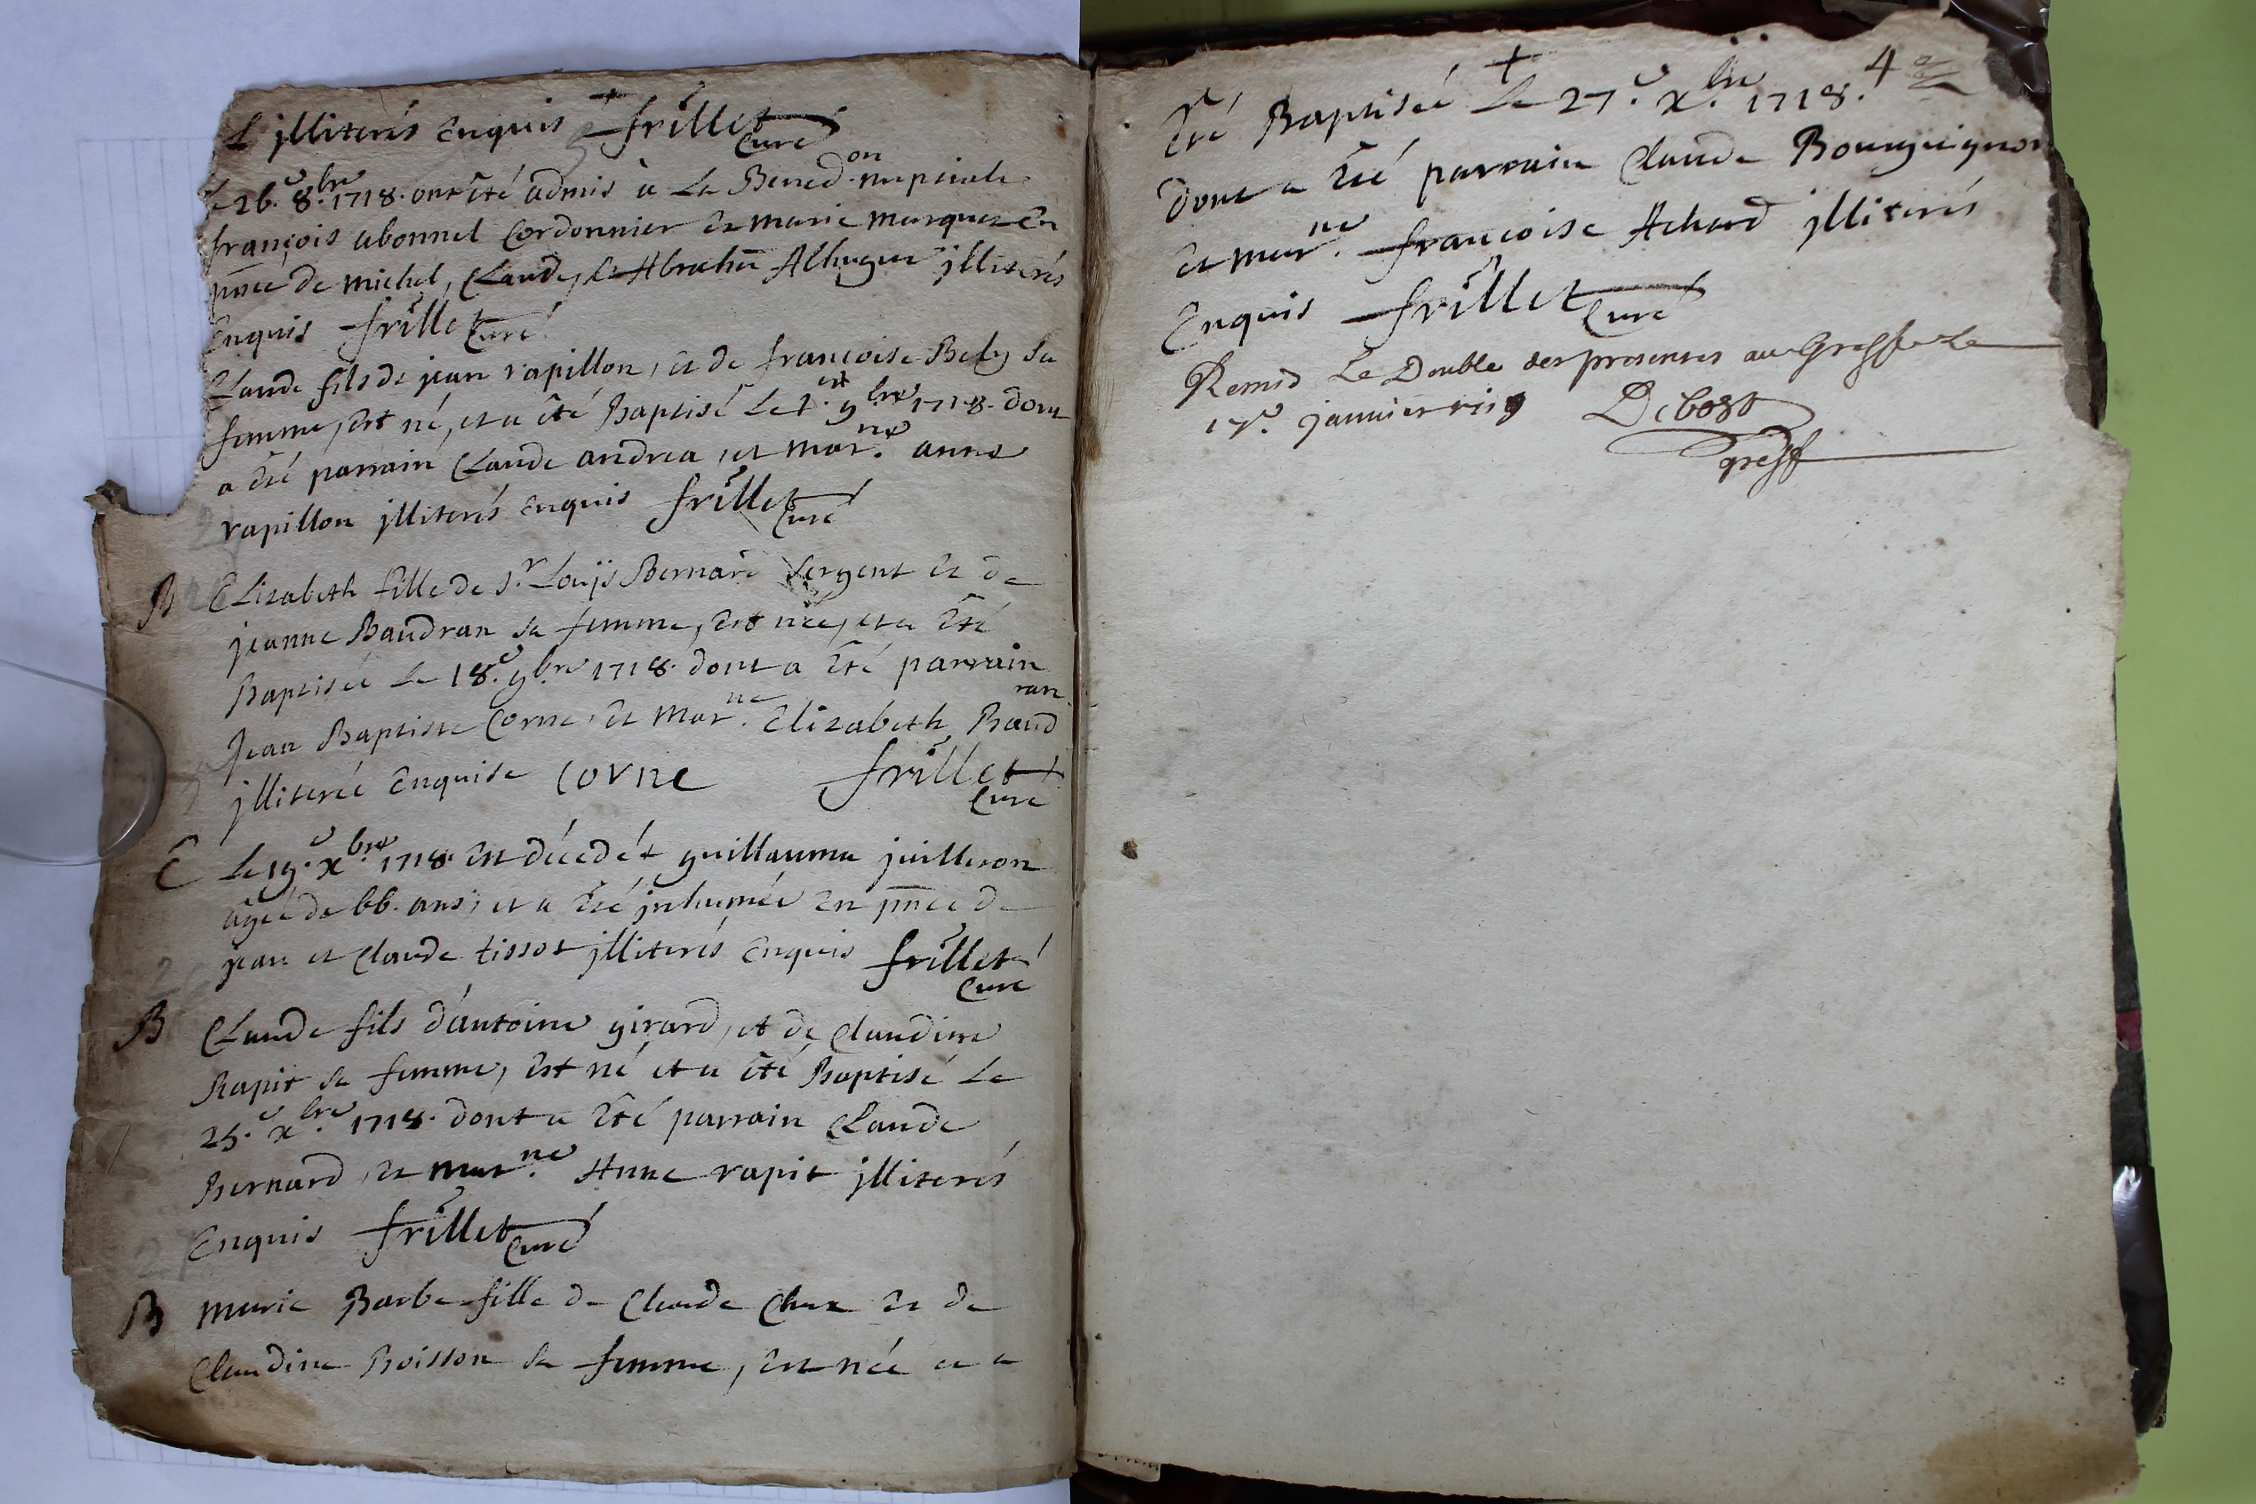 illiterés enquis frillet curé
le 26.e 8.bre 1718. ont été admis à la Bened.on nuptiale
françois abonnel Cordonnier et marie marquet En
pnce de michel, Claude, et Abraham Alhugue illiterés
Enquis frillet Curé
Claude fils de jean rapillon, et de françoise Bely sa
femme, est né, et a été Baptisé le 1.er 9.bre 1718. dont
a été parrain Claude andrea, et mar.ne anne
rapillon illiterés enquis frillet Curé
B Elizabeth fille de s.r Louÿs Bernard sergent et de
jeanne Baudran sa femme, est née, et a Eté
Baptisée le 18.e 9.bre 1718. dont a Eté parrain
Jean Baptiste Corne, et mar.ne Elizabeth Baudran
illiterée Enquise Corne frillet Curé
E Le 19.e x.bre 1718. est décedét guillaume juilleron
agéé de 66. ans, et a Eté inhumée en pnce de
jean et Claude tissot illiterés enquis frillet Curé
B Claude fils d'antoine girard, et de Claudine
Rapit sa femme, est né et a été Baptisé le
25.e x.bre 1718. dont a Eté parrain Claude
Bernard, et mar.ne Anne rapit illiterés
Enquis frillet Curé
B marie Barbe fille de Claude et de
Claudine Boisson sa femme, est née et a
4
Eté Baptisée le 27.e x.bre 1718.
dont a Eté parrain Claude Bourguignon
et mar.ne françoise Achard illiterés
Enquis frillet Curé
Remis Le Double des presentes au Greffe Le
janvier Debost
greff